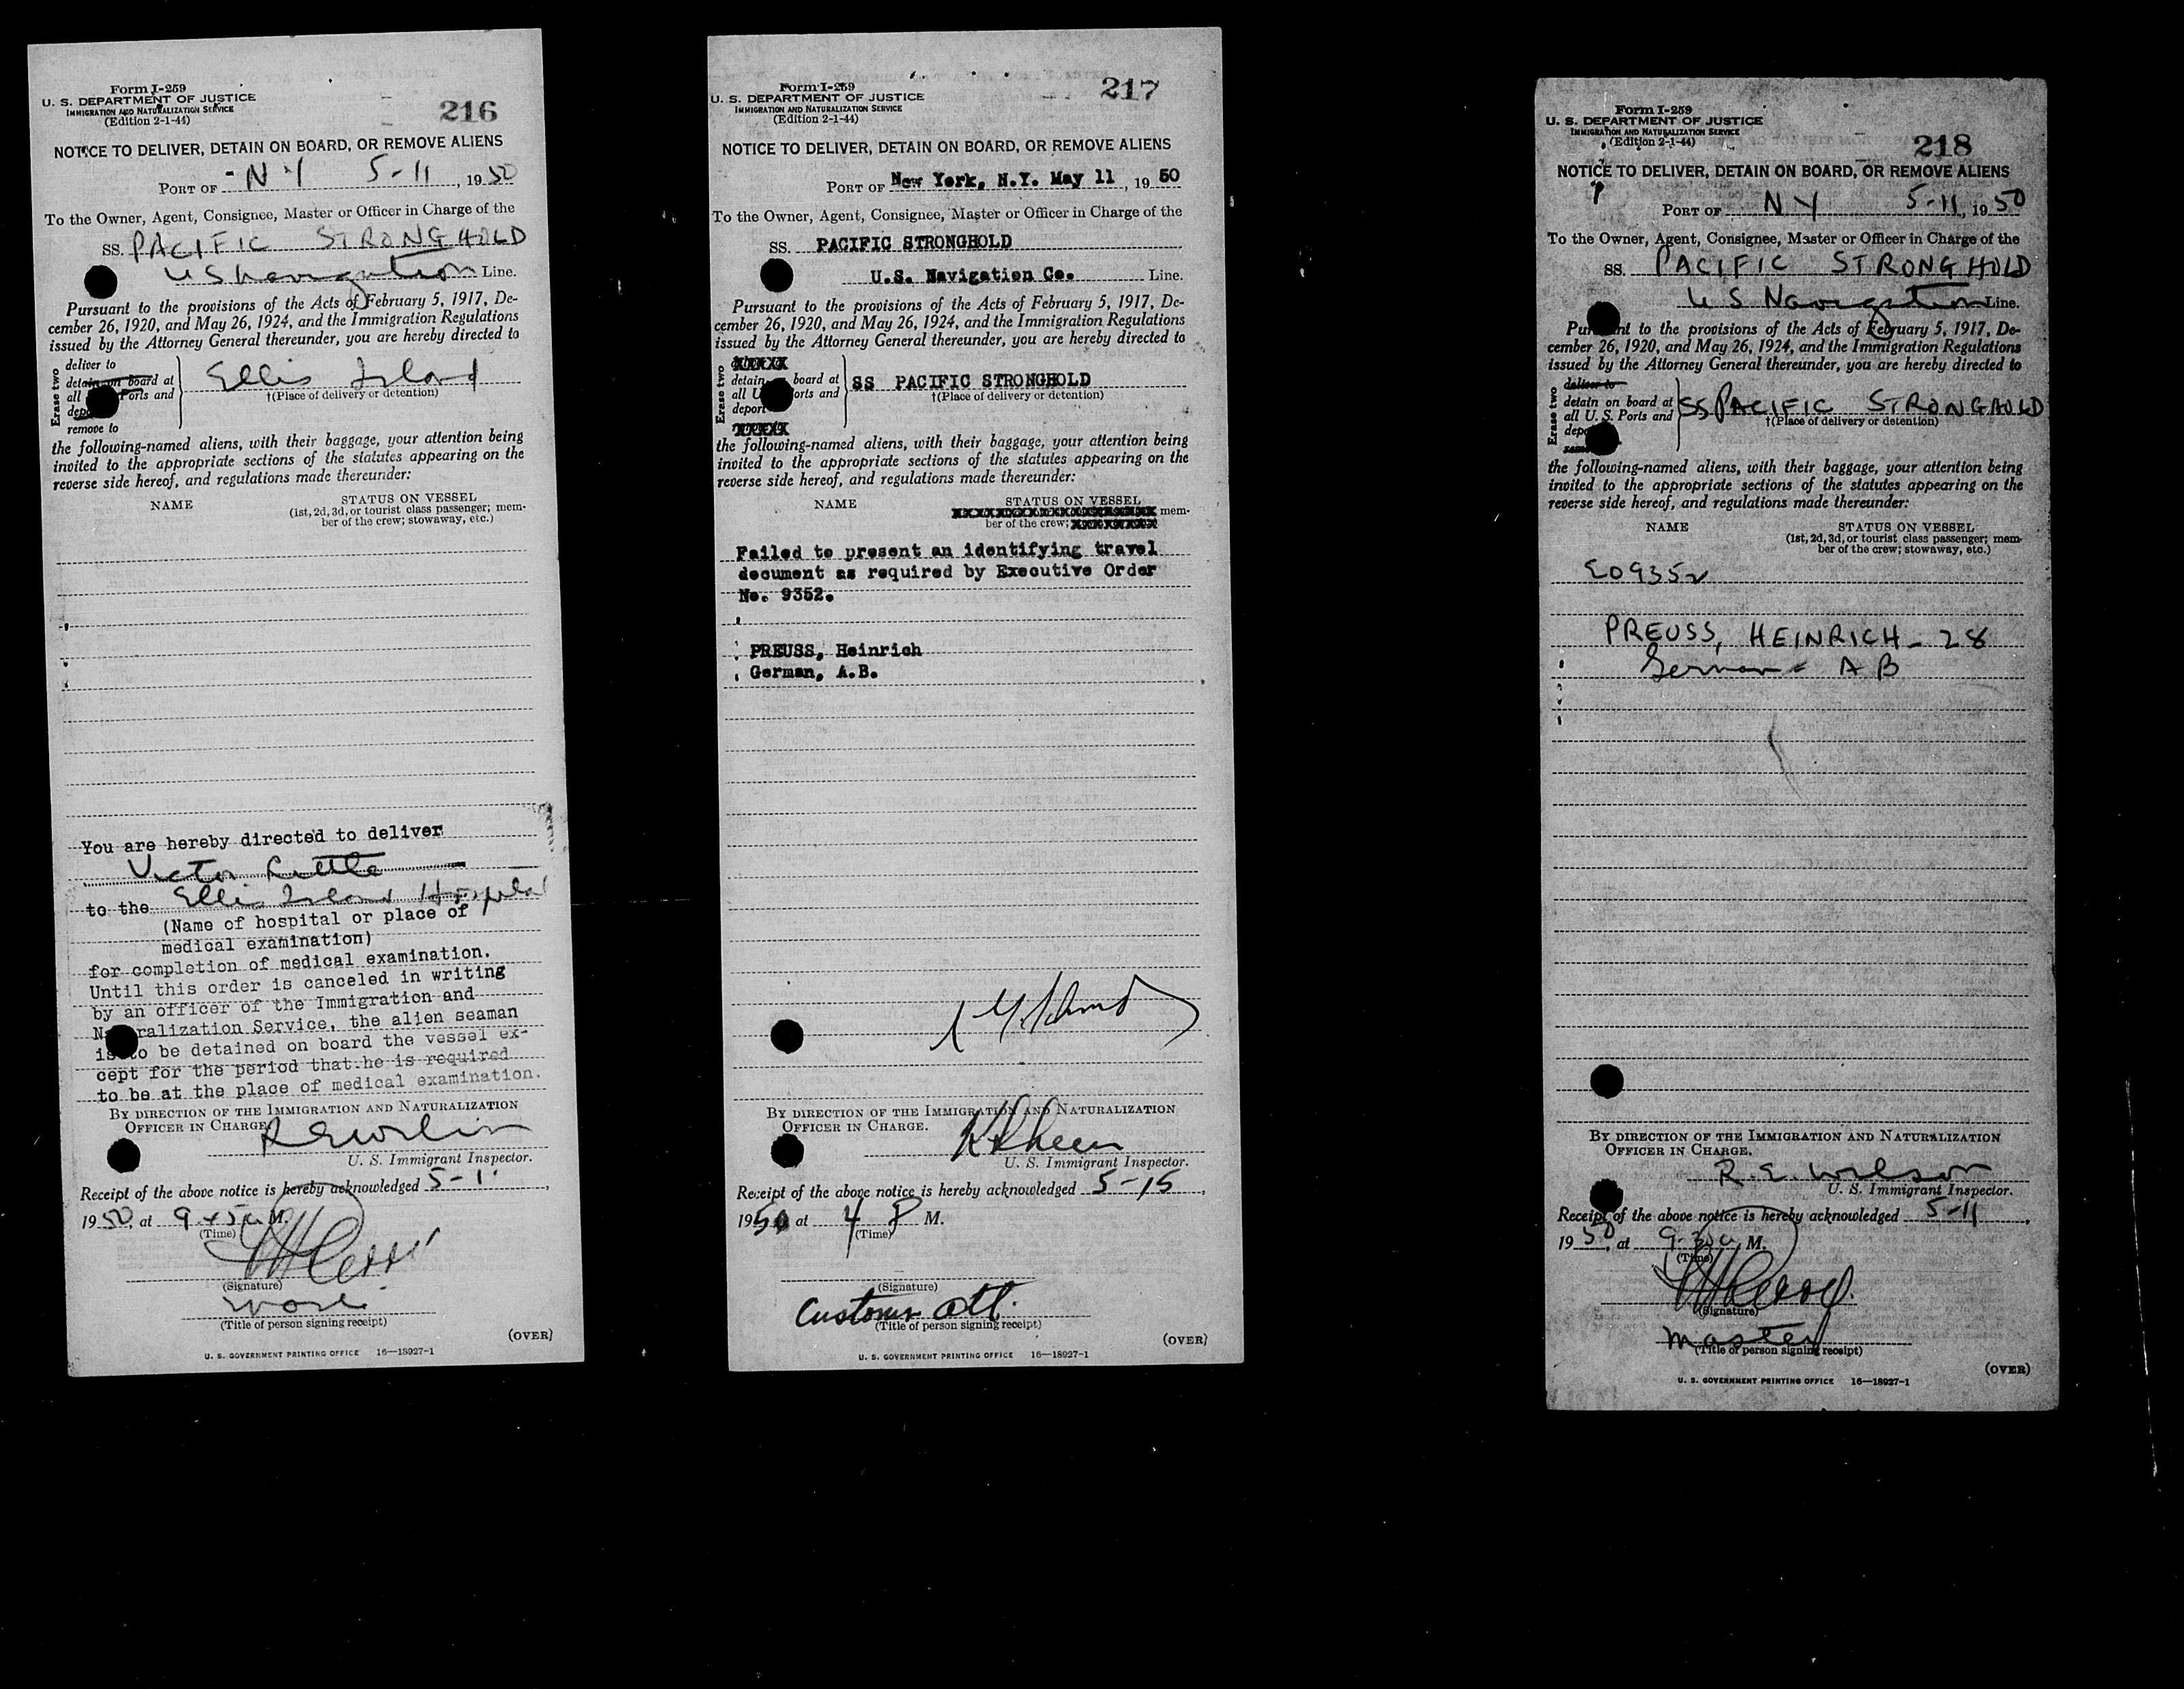 Form I-259
U. S. DEPARTMENT OF JUSTICE
IMMIGRATION AND NATURALIZATION SERVICE
(Edition 2-1-44)
216
NOTICE TO DELIVER, DETAIN ON BOARD, OR REMOVE ALIENS
PORT OF N Y 5-11, 1950
To the Owner, Agent, Consignee, Master or Officer in Charge of the
SS. PACIFIC STRONGHOLD
US Navigation Line.
Pursuant to the provisions of the Acts of February 5, 1917, De-
cember 26, 1920, and May 26, 1924, and the Immigration Regulations
issued by the Attorney General thereunder, you are hereby directed to
Erase two
deliver to
detain on board at
all Ports and
depo
remove to
Ellis Island
†(Place of delivery or detention)
the following-named aliens, with their baggage, your attention being
invited to the appropriate sections of the statutes appearing on the
reverse side hereof, and regulations made thereunder:
NAME STATUS ON VESSEL
(1st, 2d, 3d, or tourist class passenger; mem-
ber of the crew; stowaway, etc.)
You are hereby directed to deliver
Victor
to the Ellis Island Hospital
(Name of hospital or place of
medical examination)
for completion of medical examination.
Until this order is canceled in writing
by an officer of the Immigration and
N ralization Service, the alien seaman
is to be detained on board the vessel ex-
cept for the period that he is required
to be at the place of medical examination.
BY DIRECTION OF THE IMMIGRATION AND NATURALIZATION
OFFICER IN CHARGE.
R E Wilson
U. S. Immigrant Inspector.
Receipt of the above notice is hereby acknowledged 5-1
1950, at 9 45 a M.
(Time)
(Signature)
(Title of person signing receipt)
(OVER)
U. S. GOVERNMENT PRINTING OFFICE 16—18927-1
Form I-259
U. S. DEPARTMENT OF JUSTICE
IMMIGRATION AND NATURALIZATION SERVICE
(Edition 2-1-44)
217
NOTICE TO DELIVER, DETAIN ON BOARD, OR REMOVE ALIENS
PORT OF New York, N.Y. May 11, 1950
To the Owner, Agent, Consignee, Master or Officer in Charge of the
SS. PACIFIC STRONGHOLD
U.S. Navigation Co. Line.
Pursuant to the provisions of the Acts of February 5, 1917, De-
cember 26, 1920, and May 26, 1924, and the Immigration Regulations
issued by the Attorney General thereunder, you are hereby directed to
Erase two
XXXXX
detain board at
all U orts and
deport
XXXXX
SS PACIFIC STRONGHOLD
†(Place of delivery or detention)
the following-named aliens, with their baggage, your attention being
invited to the appropriate sections of the statutes appearing on the
reverse side hereof, and regulations made thereunder:
NAME STATUS ON VESSEL
mem-
ber of the crew;
Failed to present an identifying travel
document as required by Executive Order
No. 9352.
PREUSS, Heinrich
German, A.B.
BY DIRECTION OF THE IMMIGRATION AND NATURALIZATION
OFFICER IN CHARGE.
U. S. Immigrant Inspector.
Receipt of the above notice is hereby acknowledged 5-15,
1950 at 4 P M.
(Time)
(Signature)
Customs att.
(Title of person signing receipt)
(OVER)
U. S. GOVERNMENT PRINTING OFFICE 16—18927-1
Form I-259
U. S. DEPARTMENT OF JUSTICE
IMMIGRATION AND NATURALIZATION SERVICE
(Edition 2-1-44)
218
NOTICE TO DELIVER, DETAIN ON BOARD, OR REMOVE ALIENS
PORT OF N Y 5-11, 1950
To the Owner, Agent, Consignee, Master or Officer in Charge of the
SS. PACIFIC STRONGHOLD
U S Navigation Line.
Pur nt to the provisions of the Acts of February 5, 1917, De-
cember 26, 1920, and May 26, 1924, and the Immigration Regulations
issued by the Attorney General thereunder, you are hereby directed to
Erase two
deliver to
detain on board at
all U. S. Ports and
depo
SS PACIFIC STRONGHOLD
†(Place of delivery or detention)
the following-named aliens, with their baggage, your attention being
invited to the appropriate sections of the statutes appearing on the
reverse side hereof, and regulations made thereunder:
NAME STATUS ON VESSEL
(1st, 2d, 3d, or tourist class passenger; mem-
ber of the crew; stowaway, etc.)
EO 9352
PREUSS, HEINRICH - 28
German - A B
BY DIRECTION OF THE IMMIGRATION AND NATURALIZATION
OFFICER IN CHARGE.
R. E. Wilson
U. S. Immigrant Inspector.
Receipt of the above notice is hereby acknowledged 5-11,
1950, at 9-30 a M.
(Time)
(Signature)
Master
(Title of person signing receipt)
(OVER)
U. S. GOVERNMENT PRINTING OFFICE 16—18927-1